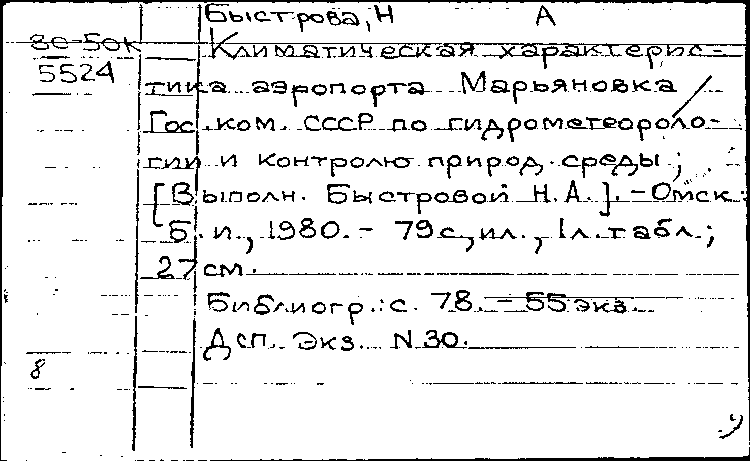 Быстрова, Н А
80-50к Климатическая характерис-
5524 тика аэропорта Марьяновка /
Гос. ком. СССР по гидрометеороло-
гии и контролю природ. среды;
[Выполн. Быстровой Н.А.]. - Омск:
Б. и., 1980. - 79с, ил., 1л. табл.;
27 см.
Библиогр.: с. 78. - 55 экз.
Дсп. Экз. N 30.
8